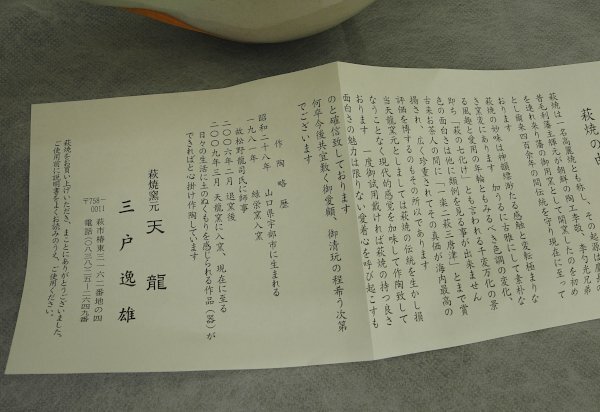 萩焼の由
萩焼は一名高麗焼とも称し、その起源は慶長
昔毛利藩主輝元が朝鮮の陶工李敬、李勺光兄弟
を連れ来り藩の御用窯として開窯したのを初め
とし爾来四百余年の間伝統を守り現在に至って
おります
萩焼の妙味は神韻縹渺たる感触と変転極まりな
き窯変にあります 加うるに古雅にして素朴な
る風趣と愛用の年輪ともみるべき色調の変化、
即ち「萩の七化け」とも言われる千変万化の景
色の面白さは他に類例を見る事が出来ません
古来お茶人の間に「一楽二萩三唐津」とまで賞
揚され、広く珍重されてその真価が海内最高の
評価を博するのもその所以であります
当天龍窯元としましては萩焼の伝統を生かし損
なうことなく現代的感覚を加味して作陶致して
おります 一度御試用戴ければ萩焼の持つ良さ
面白さの魅力は限りない愛着心を呼び起こすも
のと確信致しております
何卒今後共宜敷く御愛顧、御清玩の程希う次第
でございます
作陶略歴
昭和二十八年 山口県宇部市に生まれる
一九八一年 緑栄窯入窯
故松野龍司氏に師事
二〇〇六年二月 退窯後
二〇〇九年三月 天龍窯に入窯、現在に至る
日々の生活に土のぬくもりを感じられる作品（器）が
できればと心掛け作陶しています
萩焼窯元 天龍
三戸逸雄
〒758-0011 萩市椿東三一六二番地の四
電話（〇八三八）二五-二六四九番
萩焼をお買い上げいただき、まことにありがとうございました。
ご使用前に説明書をよくお読みのうえ、ご使用ください。